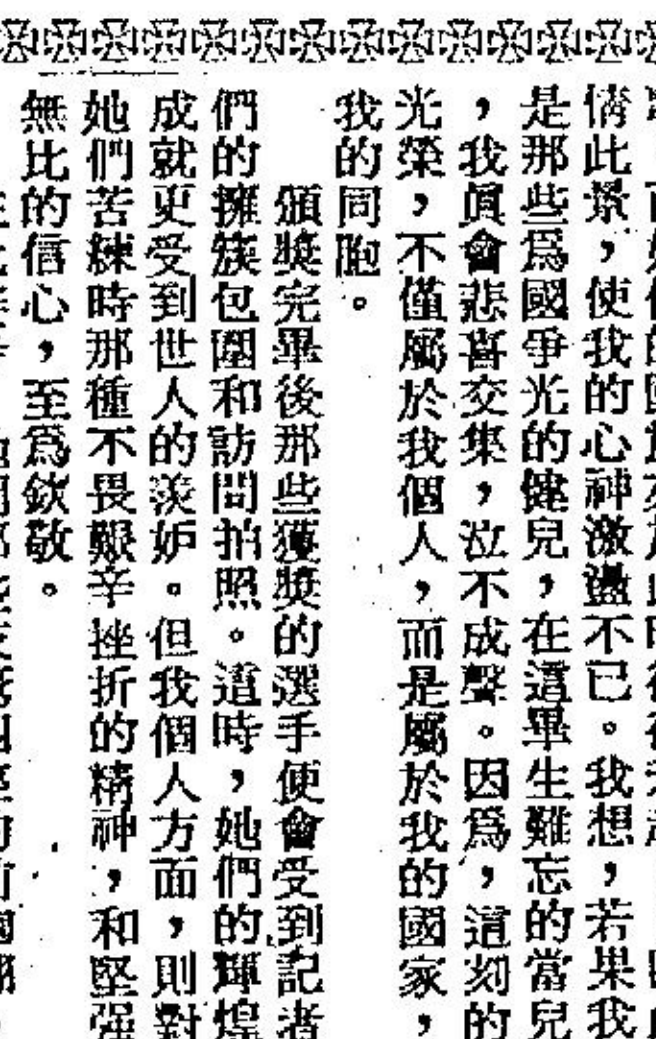 情此景，使我的心神激盪不已。我想，若果我
是那些爲國爭光的健兒，在這畢生難忘的當兒
，我眞會悲喜交集，泣不成聲。因爲，這刻的
光榮，不僅屬於我個人，而是屬於我的國家，
我的同胞。
頒獎完畢後那些獲獎的選手便會受到記者
們的擁簇包圍和訪問拍照。這時，她們的輝煌
成就更受到世人的羨妒。但我個人方面，則對
她們苦練時那種不畏艱辛挫折的精神，和堅强
無比的信心，至爲欽敬。